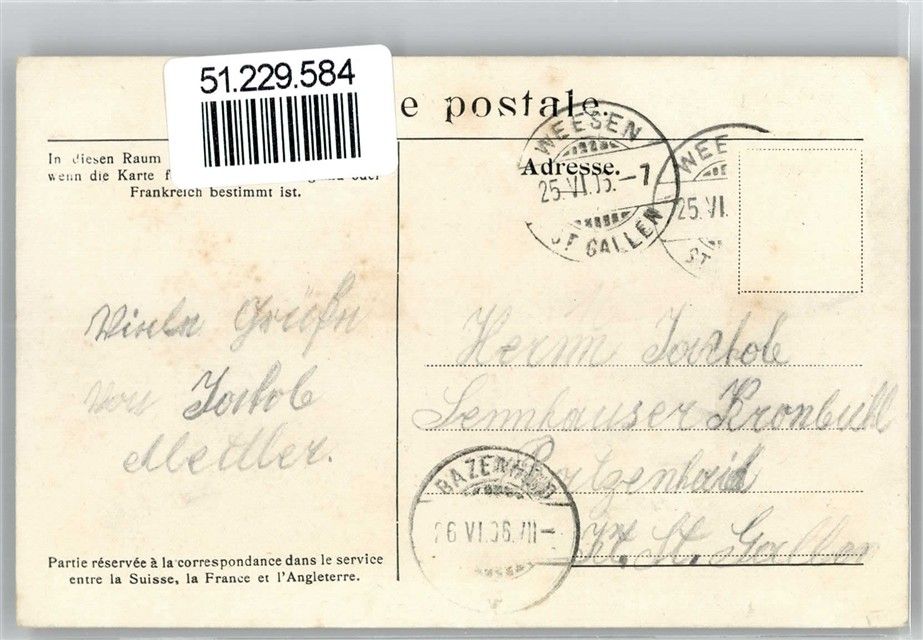 51.229.584
e postale.
In diesen Raum
wenn die Karte
Frankreich bestimmt ist.
Adresse.
WEESEN
25.VI.06.-7
ST GALLEN
WEE
25.VI.
ST
Viele Grüße
von Jakob
Mettler.
Herrn Jackob
Sennhauser Kronbühl
Batzenhaid
Kt. St. Gallen
BAZENHEID
26 VI.06.VII-
Partie réservée à la correspondance dans le service
entre la Suisse, la France et l'Angleterre.